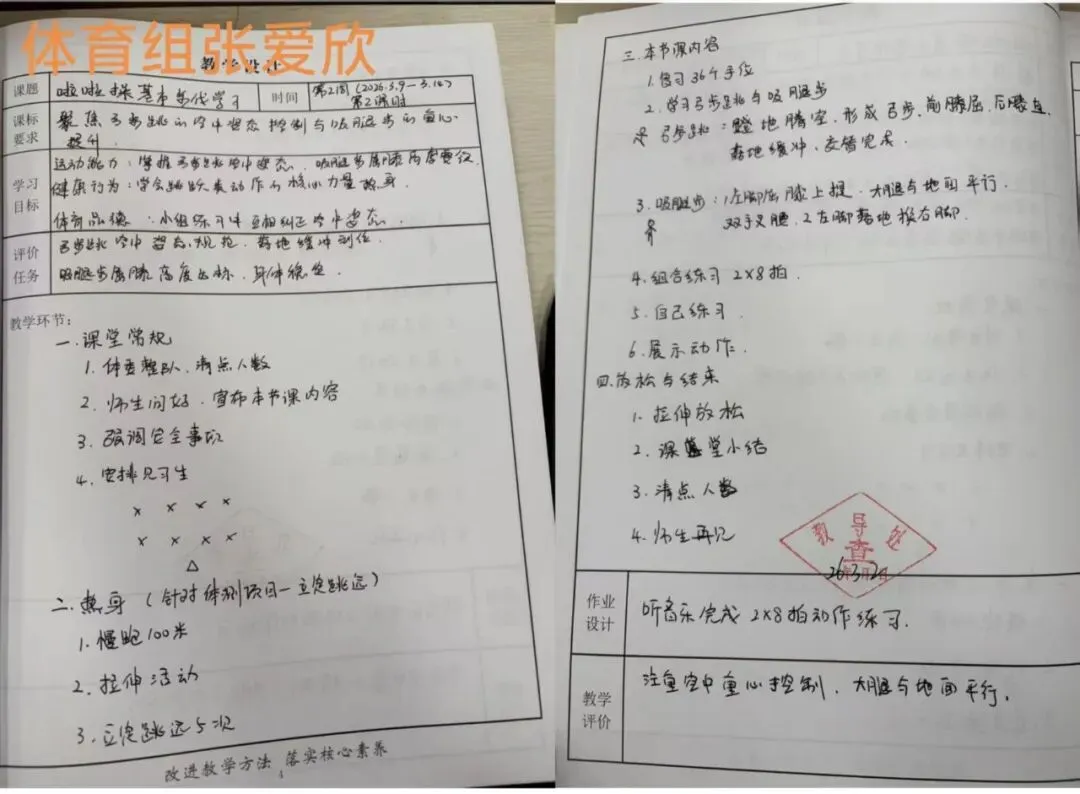 体育组张爱欣
教学设计
课题 啦啦操基本步伐学习 时间 第2周(2026.3.9-3.14)
第2课时
课标要求 聚焦弓步跳的空中姿态控制与吸腿步的重心
提升.
学习目标 运动能力：掌握弓步跳空中姿态、吸腿步屈膝高度要领.
健康行为：学会跳跃类动作的核心力量热身.
体育品德：小组练习中互相纠正空中姿态.
评价任务 弓步跳空中姿态规范、落地缓冲到位.
吸腿步屈膝高度达标、身体稳定.
教学环节：
一.课堂常规
1.体委整队、清点人数
2.师生问好.宣布本节课内容
3.强调安全事项
4.安排见习生
x x x x
x x x x
△
二.热身(针对体测项目-立定跳远)
1.慢跑100米
2.拉伸活动
3.立定跳远5次
改进教学方法 落实核心素养
4
三.本节课内容
1.复习36个手位
2.学习弓步跳与吸腿步
弓步跳：蹬地腾空,形成弓步,前膝屈,后膝直,
落地缓冲、交替完成.
3.吸腿步：1左脚屈膝上提.大腿与地面平行.
双手叉腰.2左脚落地换右脚.
4.组合练习 2×8拍.
5.自己练习.
6.展示动作.
四.放松与结束
1.拉伸放松
2.课堂小结
3.清点人数
4.师生再见
教导处
查
作业设计 听音乐完成2×8拍动作练习.
教学评价 注重空中重心控制、大腿与地面平行.